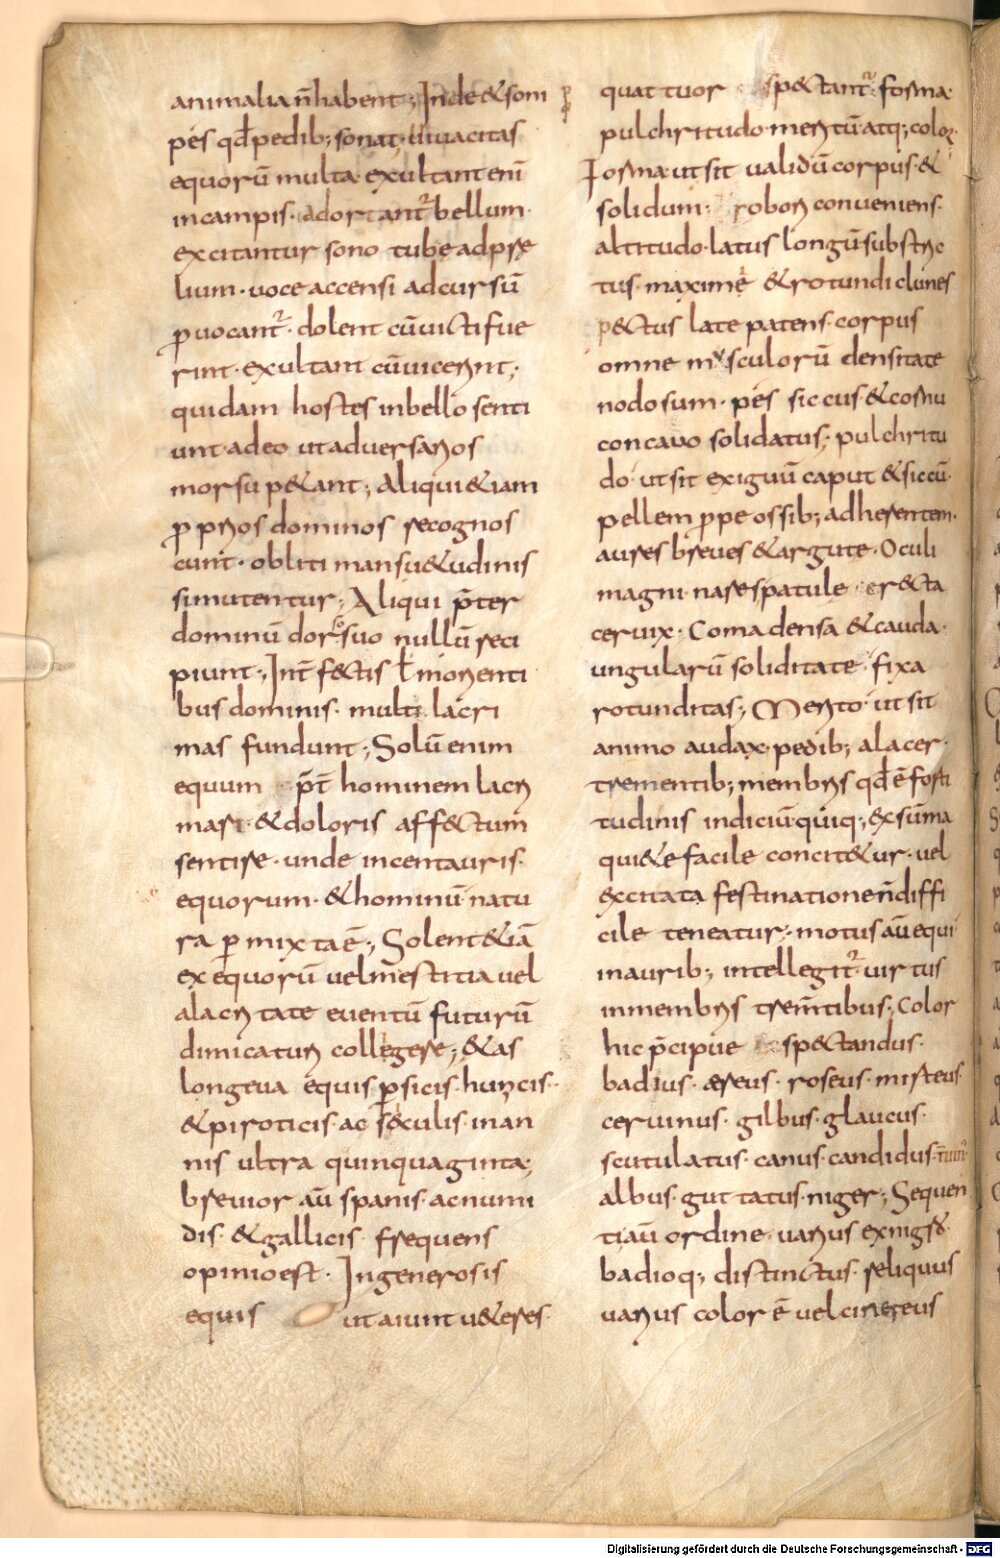 animalia n̄ habent; Inde & soni
pes qd̄ pedib; sonat; uiuacitas
equorū multa· exultant enī
in campis· adorant᷑ bellum·
excitantur sono tube ad pre
lium· uoce accensi ad cursū
ꝓuocant᷑· dolent cū uicti fue
rint· exultant cū uicerint;
quidam hostes in bello senti
unt· adeo ut aduersarios
morsu p&ant; Aliqui &iam
ꝓprios dominos recognos
cunt· obliti mansu&udinis
si mutentur; Aliqui p̄ter
dominū dorso suo nullū reci
piunt; Int̄ f&ctis ł morienti
bus dominis· multi lacri
mas fundunt; Solū enim
equum p̄t hominem lacri
mare & doloris aff&ctum
sentire· unde in centauris·
equorum· & hominū natu
ra ꝑmixta ē; Solent &iā
ex equorū uel mestitia uel
alacritate euentū futurū
dimicaturi collegere; &as
longeua equis ꝑsicis· hunicis·
& piroticis· ac s&culis· in an
nis ultra quinquaginta;
breuior aū spanis· ac numi
dis· & gallicis· frequens
opinio est· In generosis
equis ut aiunt u&eres·
quattuor sp&ctant᷑· forma·
pulchritudo· meritū atq; color·
Forma· ut sit ualidū corpus &
solidum· robori conueniens·
altitudo· latus longū substric
tus· maxime & rotundi clunes
p&ctus late patens· corpus
omne musculorū densitate
nodosum· pes siccus· & cornu
concauo solidatus; pulchritu
do· ut sit exiguū caput & siccū·
pellem ꝓpe ossib; adherentem·
aures breues & argute· Oculi
magni· nare spatule er&cta
ceruix· Coma densa & cauda·
ungularū soliditate· fixa
rotunditas; Merito· ut sit
animo audax· pedib; alacer·
trementib; membris qd̄ ē forti
tudinis indiciū· quiq; ex sūma
qui&e facile concit&ur· uel
excitata festinatione n̄ diffi
cile teneatur; motus aū equi
in aurib; intellegit᷑· uirtus
in membris trem̄tibus; Color
hic p̄cipue sp&ctandus·
badius· æreus· roseus· mirteus·
ceruinus· gilbus· glaucus·
scutulatus· canus· candidus·
albus· guttatus· niger; Sequen
ti aū ordine· uarius ex nigro·
badioq; distinctus· reliquus
uarius color ē uel cinereus
Digitalisierung gefördert durch die Deutsche Forschungsgemeinschaft - DFG